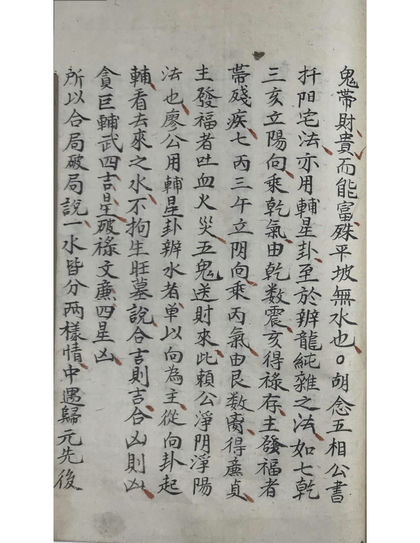 鬼帶財貴而能富殊平坡無水也。胡念五相公書
扦阳宅法亦用輔星卦至於辨龍純雜之法如七乾
三亥立陽向乘乾氣由乾数震亥得禄存主發福者
帶殘疾七丙三午立阴向乘丙氣由艮数离得廉貞
主發福者吐血火災五鬼送財來此賴公淨阴淨陽
法也廖公用輔星卦辨水者單以向為主從向卦起
輔看去來之水不拘生旺墓説合吉則吉合凶則凶
貪巨輔武四吉星破祿文廉四星凶
所以合局破局説一水皆分两樣情中遇歸元先後